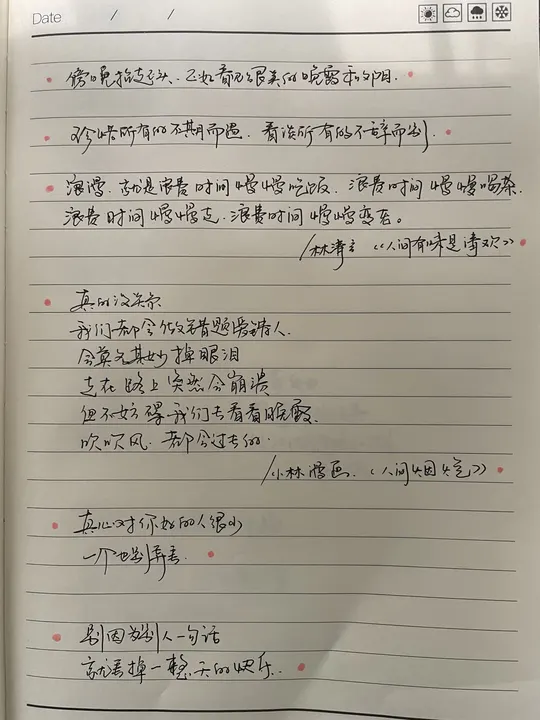 Date / /
傍晚抬起头、正好看见很美的晚霞和夕阳.
珍惜所有的不期而遇. 看淡所有的不辞而别.
浪漫. 就是浪费时间慢慢吃饭. 浪费时间慢慢喝茶.
浪费时间慢慢走. 浪费时间慢慢变老。
/林清玄《人间有味是清欢》
真的没关系
我们都会做错题爱错人.
会莫名其妙掉眼泪
走在路上突然会崩溃
但不妨碍我们去看看晚霞.
吹吹风. 都会过去的.
/小林漫画.《人间烟火》
真心对你好的人很少
一个也别弄丢.
别因为别人一句话
就丢掉一整天的快乐.